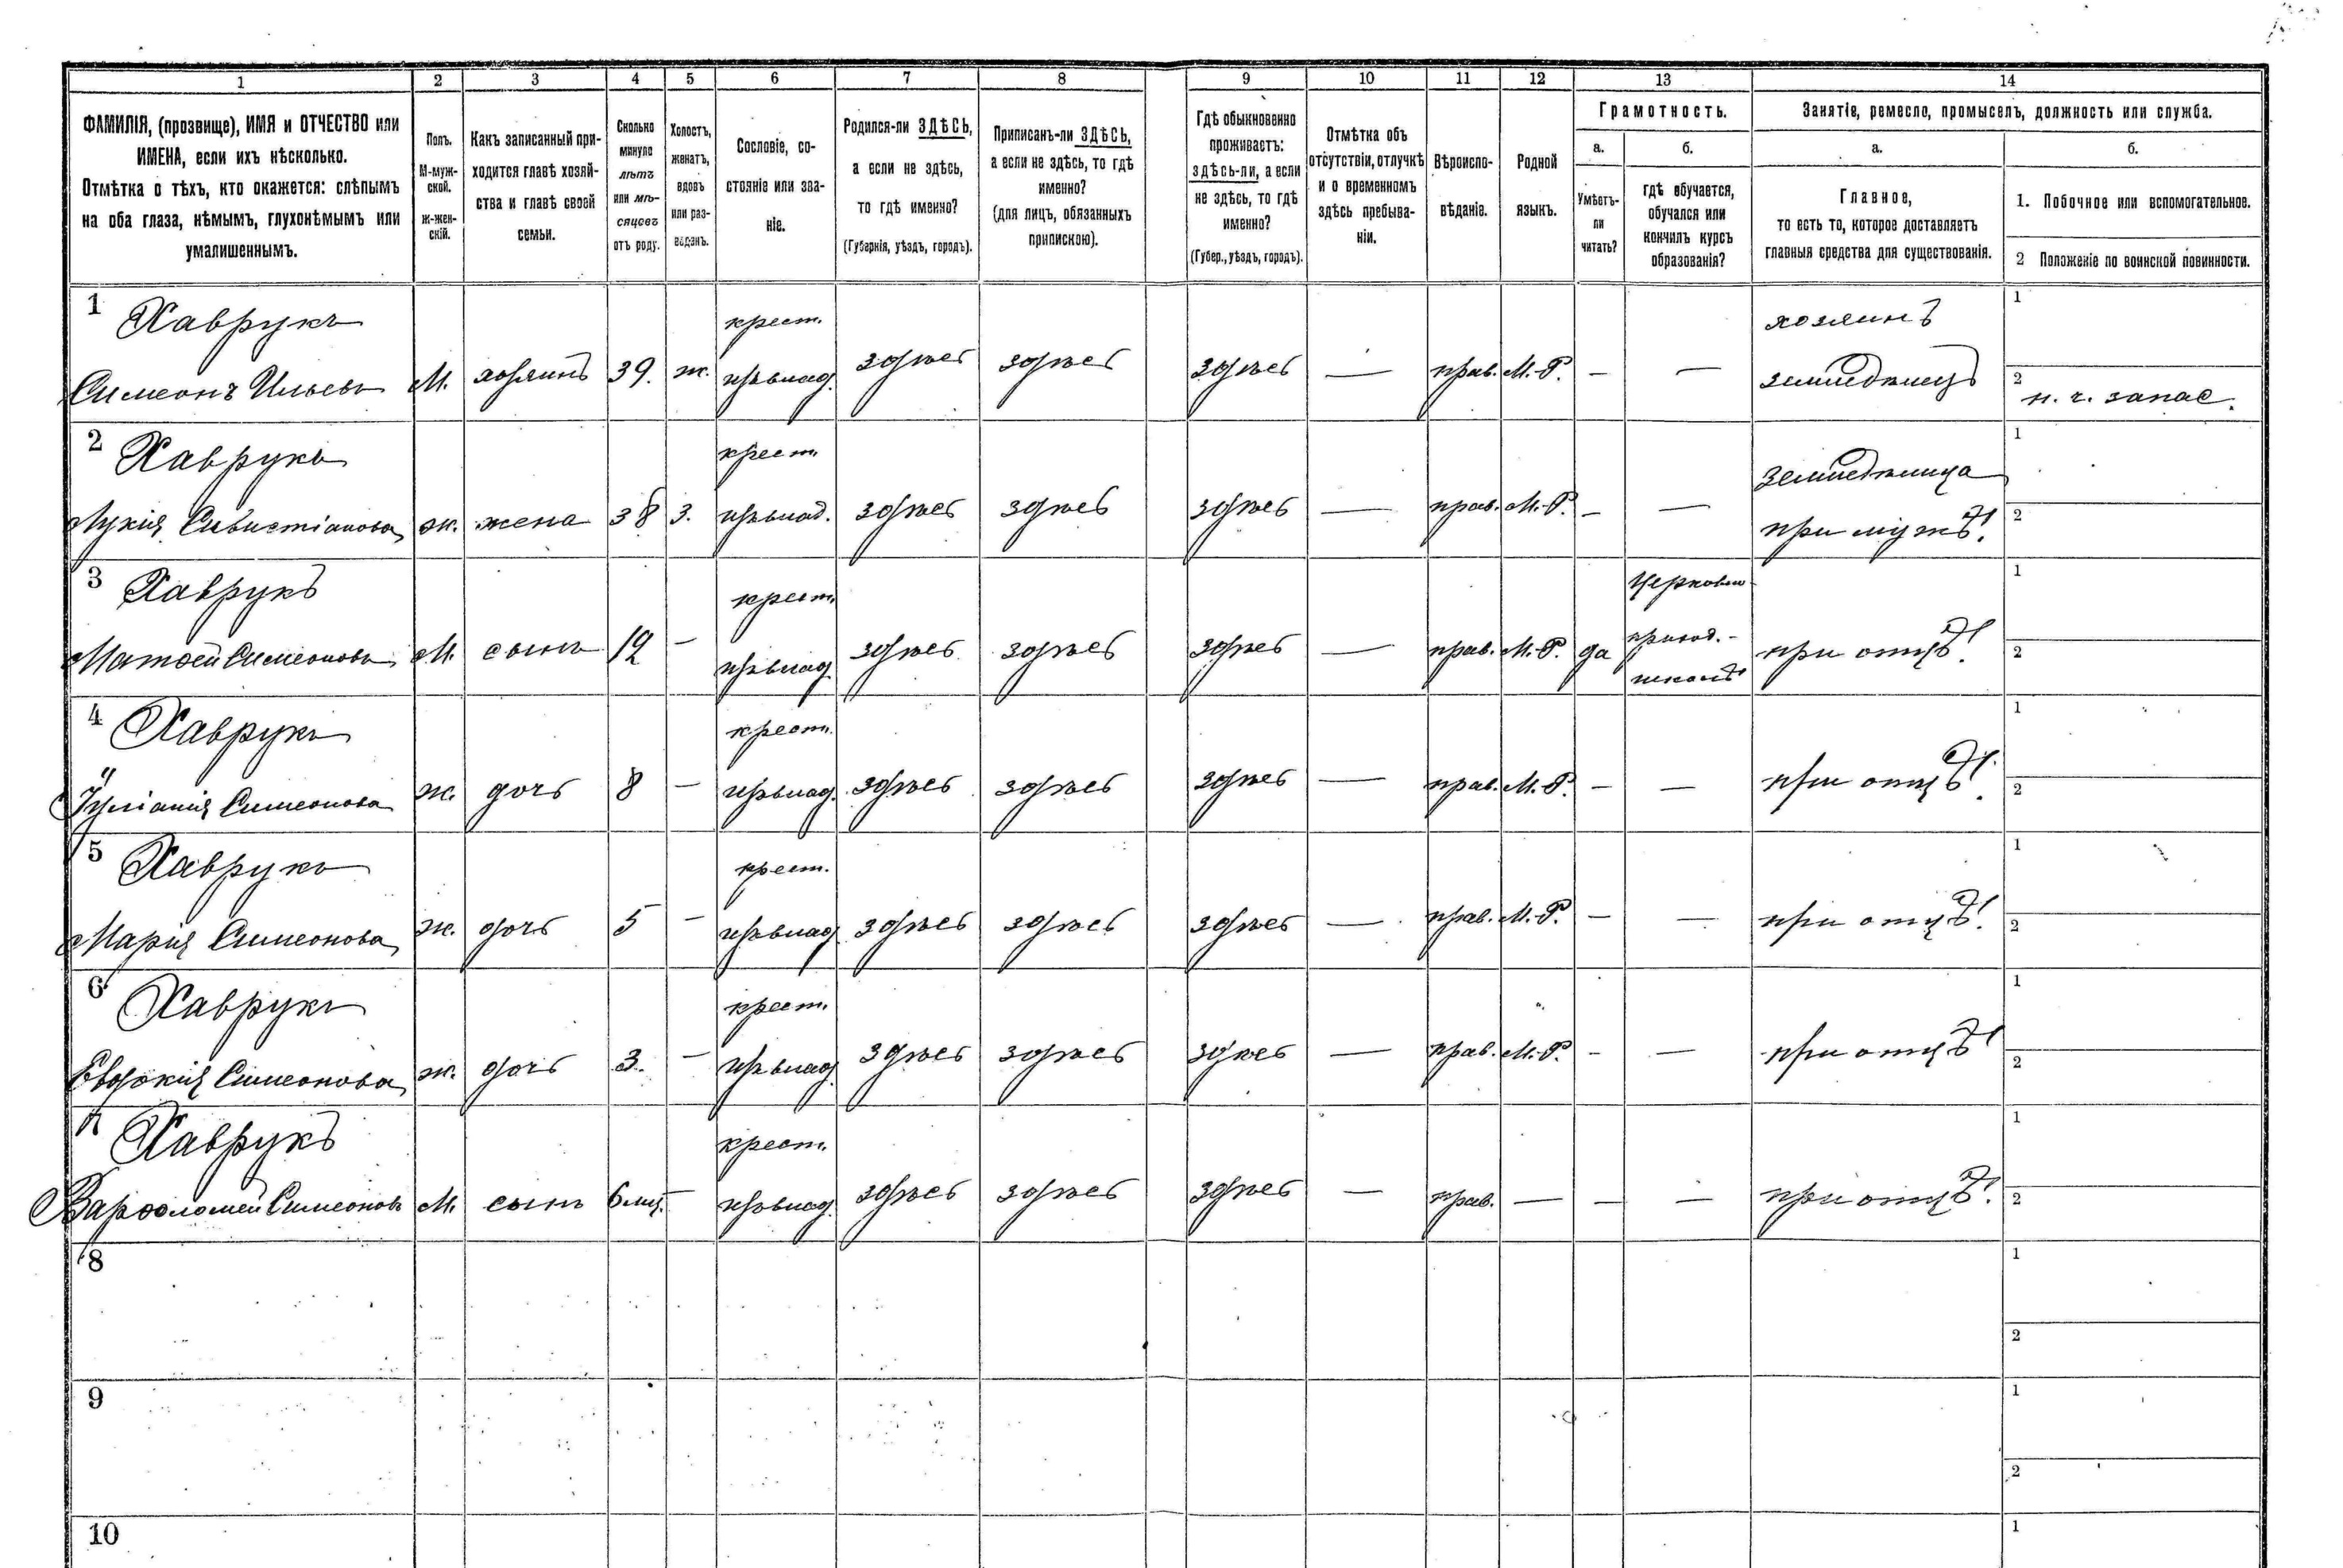 1 2 3 4 5 6 7 8 9 10 11 12 13 14
ФАМИЛІЯ, (прозвище), ИМЯ и ОТЧЕСТВО или
ИМЕНА, если ихъ нѣсколько.
Отмѣтка о тѣхъ, кто окажется: слѣпымъ
на оба глаза, нѣмымъ, глухонѣмымъ или
умалишеннымъ.
Полъ.
М-муж-
ской.
Ж-жен-
скій.
Какъ записанный при-
ходится главѣ хозяй-
ства и главѣ своей
семьи.
Сколько
минуло
лѣтъ
или мѣ-
сяцевъ
отъ роду.
Холостъ,
женатъ,
вдовъ
или раз-
веденъ.
Сословіе, со-
стояніе или зва-
ніе.
Родился-ли ЗДѢСЬ,
а если не здѣсь,
то гдѣ именно?
(Губернія, уѣздъ, городъ).
Приписанъ-ли ЗДѢСЬ,
а если не здѣсь, то гдѣ
именно?
(для лицъ, обязанныхъ
припискою).
Гдѣ обыкновенно
проживаетъ:
здѣсь-ли, а если
не здѣсь, то гдѣ
именно?
(Губер., уѣздъ, городъ).
Отмѣтка объ
отсутствіи, отлучкѣ
и о временномъ
здѣсь пребыва-
ніи.
Вѣроиспо-
вѣданіе.
Родной
языкъ.
Грамотность.
а.
Умѣетъ-
ли
читать?
б.
гдѣ обучается,
обучался или
кончилъ курсъ
образованія?
Занятія, ремесло, промыселъ, должность или служба.
а.
Главное,
то есть то, которое доставляетъ
главныя средства для существованія.
б.
1. Побочное или вспомогательное.
2 Положеніе по воинской повинности.
1 Хаврукъ крест. хозяинъ 1
Симеонъ Ильевъ М. хозяинъ 39. ж. здѣсь здѣсь здѣсь — прав. М.-Р. — — земледѣлецъ 2 н. ч. запас.
2 Хаврукъ крест. земледѣлица 1
Лукія Сивистіанова ж. жена 38 з. здѣсь здѣсь здѣсь — прав. М.-Р. — — при мужѣ. 2
3 Хаврукъ крест. Церковно- 1
Матѳей Симеоновъ М. сынъ 12 — здѣсь здѣсь здѣсь — прав. М.-Р. да приход.- при отцѣ. 2
школѣ
4 Хаврукъ крест. 1
Іуліанія Симеонова ж. дочь 8 — здѣсь здѣсь здѣсь — прав. М.-Р. — — при отцѣ. 2
5 Хаврукъ крест. 1
Марія Симеонова ж. дочь 5 — здѣсь здѣсь здѣсь — прав. М.-Р. — — при отцѣ. 2
6 Хаврукъ крест. 1
Евдокія Симеонова ж. дочь 3. — здѣсь здѣсь здѣсь — прав. М.-Р. — — при отцѣ 2
7 Хаврукъ крест. 1
Варѳоломей Симеоновъ М. сынъ 6 мц. — здѣсь здѣсь здѣсь — прав. — — — при отцѣ. 2
8 1
2
9 1
2
10 1